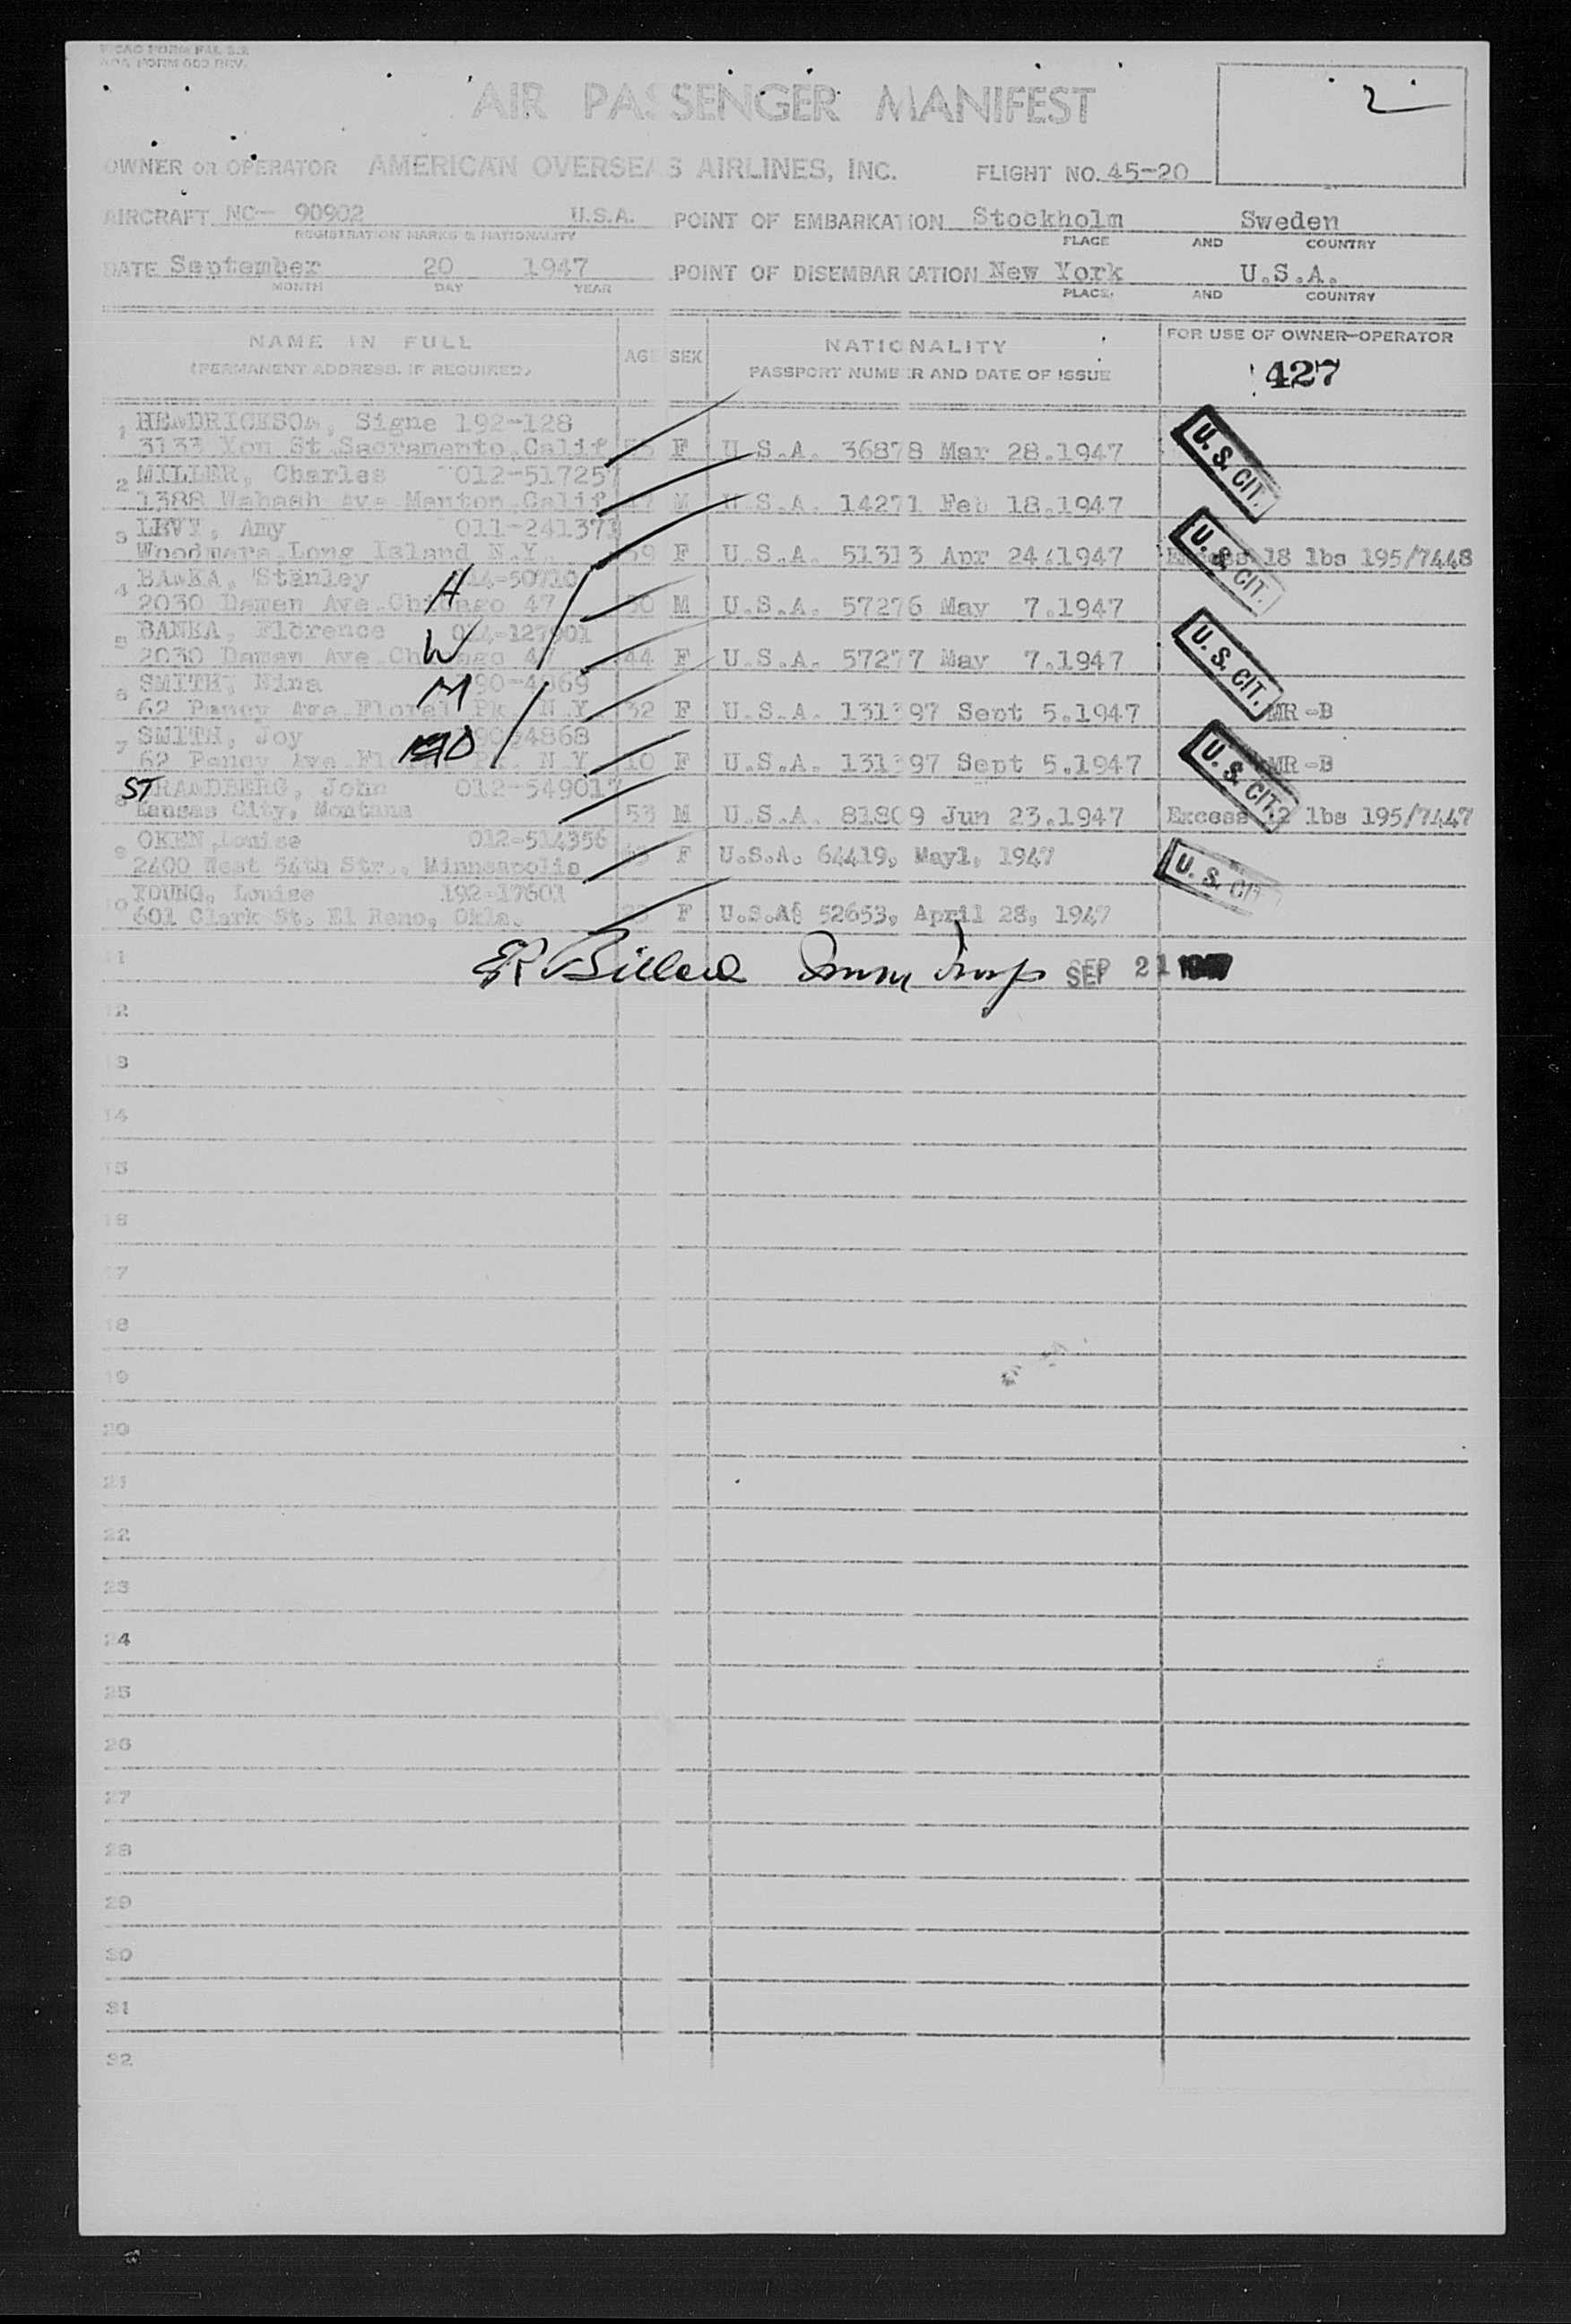 AIR PASSENGER MANIFEST
2
OWNER OR OPERATOR AMERICAN OVERSEAS AIRLINES, INC. FLIGHT NO. 45-20
AIRCRAFT NC- 90902 U.S.A. POINT OF EMBARKATION Stockholm Sweden
REGISTRATION MARKS & NATIONALITY PLACE AND COUNTRY
DATE September 20 1947 POINT OF DISEMBARKATION New York U.S.A.
MONTH DAY YEAR PLACE AND COUNTRY
NAME IN FULL AGE SEX NATIONALITY FOR USE OF OWNER-OPERATOR
(PERMANENT ADDRESS, IF REQUIRED) PASSPORT NUMBER AND DATE OF ISSUE 427
1 HENDRICKSON, Signe 192-128
3133 Yon St Sacramento Calif F U.S.A. 36878 Mar 28.1947 U.S. CIT.
2 MILLER, Charles 012-51725
1388 Wabash Ave Menton Calif M U.S.A. 14271 Feb 18.1947
3 LEVY, Amy 011-241371
Woodmere Long Island N.Y. 59 F U.S.A. 51313 Apr 24.1947 U.S. CIT. Excess 18 lbs 195/7448
4 BANKA, Stanley H
2030 Damen Ave Chicago 47 50 M U.S.A. 57276 May 7.1947
5 BANKA, Florence W 014-127901
2030 Damen Ave Chicago 47 44 F U.S.A. 57277 May 7.1947 U.S. CIT.
6 SMITH, Nina M 90-4869
62 Pansy Ave Floral Pk. N Y 32 F U.S.A. 131397 Sept 5.1947 MR-B
7 SMITH, Joy D 90-4868
62 Pansy Ave Floral Pk. N Y 10 F U.S.A. 131397 Sept 5.1947 U.S. CIT. MR-B
8 STRANDBERG, John 012-549017
Kansas City, Montana 53 M U.S.A. 81809 Jun 23.1947 Excess 12 lbs 195/7447
9 OKEN, Louise 012-514356
2400 West 54th Str., Minneapolis F U.S.A. 64419, May1, 1947 U.S. CIT
10 YOUNG, Louise 192-17601
601 Clark St. El Reno, Okla. F U.S.A. 52653, April 28, 1947
11 SEP 21 1947
12
13
14
15
16
17
18
19
20
21
22
23
24
25
26
27
28
29
30
31
32